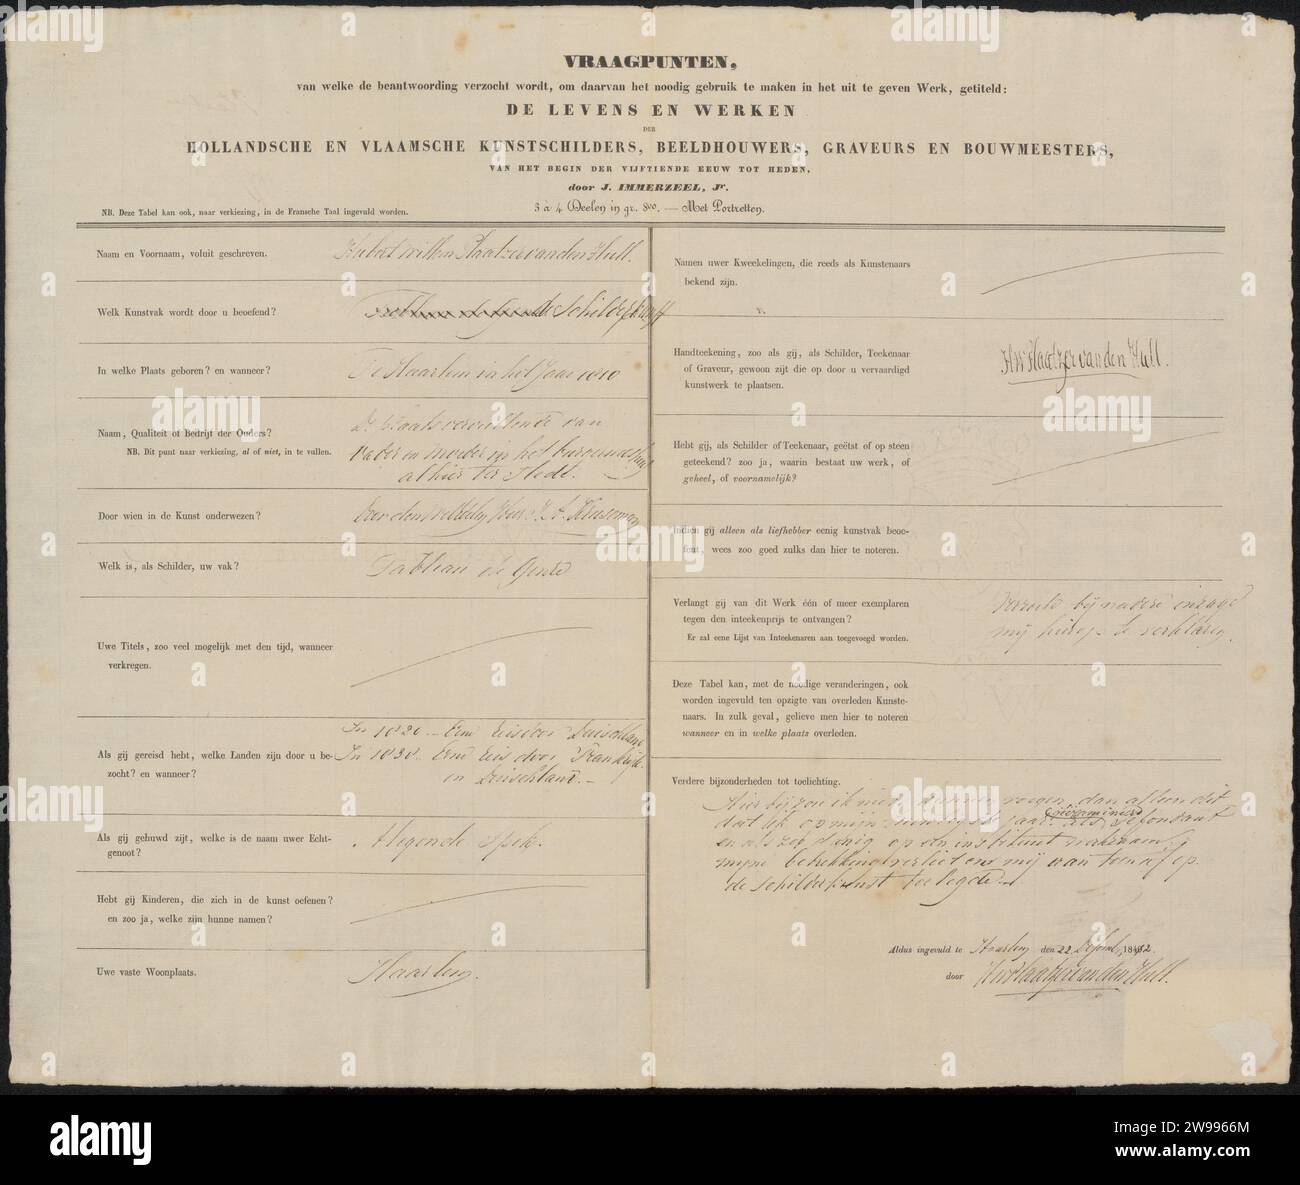 VRAAGPUNTEN,
van welke de beantwoording verzocht wordt, om daarvan het noodig gebruik te maken in het uit te geven Werk, getiteld:
DE LEVENS EN WERKEN
DER
HOLLANDSCHE EN VLAAMSCHE KUNSTSCHILDERS, BEELDHOUWERS, GRAVEURS EN BOUWMEESTERS,
VAN HET BEGIN DER VIJFTIENDE EEUW TOT HEDEN,
door J. IMMERZEEL, Jr.
3 à 4 Deelen in gr. 8vo. — Met Portretten.
NB. Deze Tabel kan ook, naar verkiezing, in de Fransche Taal ingevuld worden.
Naam en Voornaam, voluit geschreven.
Hubert Willem Plaatzer van den Hull.
Welk Kunstvak wordt door u beoefend?
de Schilderkunst
In welke Plaats geboren? en wanneer?
Te Haarlem in het Jaar 1810
Naam, Qualiteit of Bedrijf der Ouders?
NB. Dit punt naar verkiezing, al of niet, in te vullen.
van
Vader en moeder in het
alhier ter Stede.
Door wien in de Kunst onderwezen?
Door den
Welk is, als Schilder, uw vak?
Tableau de Genre
Uwe Titels, zoo veel mogelijk met den tijd, wanneer
verkregen.
Als gij gereisd hebt, welke Landen zijn door u be-
zocht? en wanneer?
In 1830 — Eene reis door Duischland
In 1838 Eene reis door Frankrijk
en Duischland. —
Als gij gehuwd zijt, welke is de naam uwer Echt-
genoot?
Alegonde Spek.
Hebt gij Kinderen, die zich in de kunst oefenen?
en zoo ja, welke zijn hunne namen?
Uwe vaste Woonplaats.
Haarlem.
Namen uwer Kweekelingen, die reeds als Kunstenaars
bekend zijn.
Handteekening, zoo als gij, als Schilder, Teekenaar
of Graveur, gewoon zijt die op door u vervaardigd
kunstwerk te plaatsen.
HW Plaatzer van den Hull.
Hebt gij, als Schilder of Teekenaar, geëtst of op steen
geteekend? zoo ja, waarin bestaat uw werk, of
geheel, of voornamelijk?
Indien gij alleen als liefhebber eenig kunstvak beoe-
fent, wees zoo goed zulks dan hier te noteren.
Verlangt gij van dit Werk één of meer exemplaren
tegen den inteekenprijs te ontvangen?
Er zal eene Lijst van Inteekenaren aan toegevoegd worden.
bij nadere inzage
mij hierop te verklaren.
Deze Tabel kan, met de noodige veranderingen, ook
worden ingevuld ten opzigte van overleden Kunste-
naars. In zulk geval, gelieve men hier te noteren
wanneer en in welke plaats overleden.
Verdere bijzonderheden tot toelichting.
Hier bij zou ik niets kunnen voegen dan alleen dit
dat ik op mijn jaar als
en als zoo danig op een instituut
mijne betrekking verliet en mij van toen af op
de Schilderkunst toelegde. —
Aldus ingevuld te Haarlem den 22 1842.
door HW Plaatzer van den Hull.
alamy
Image ID: 2W9966M
www.alamy.com